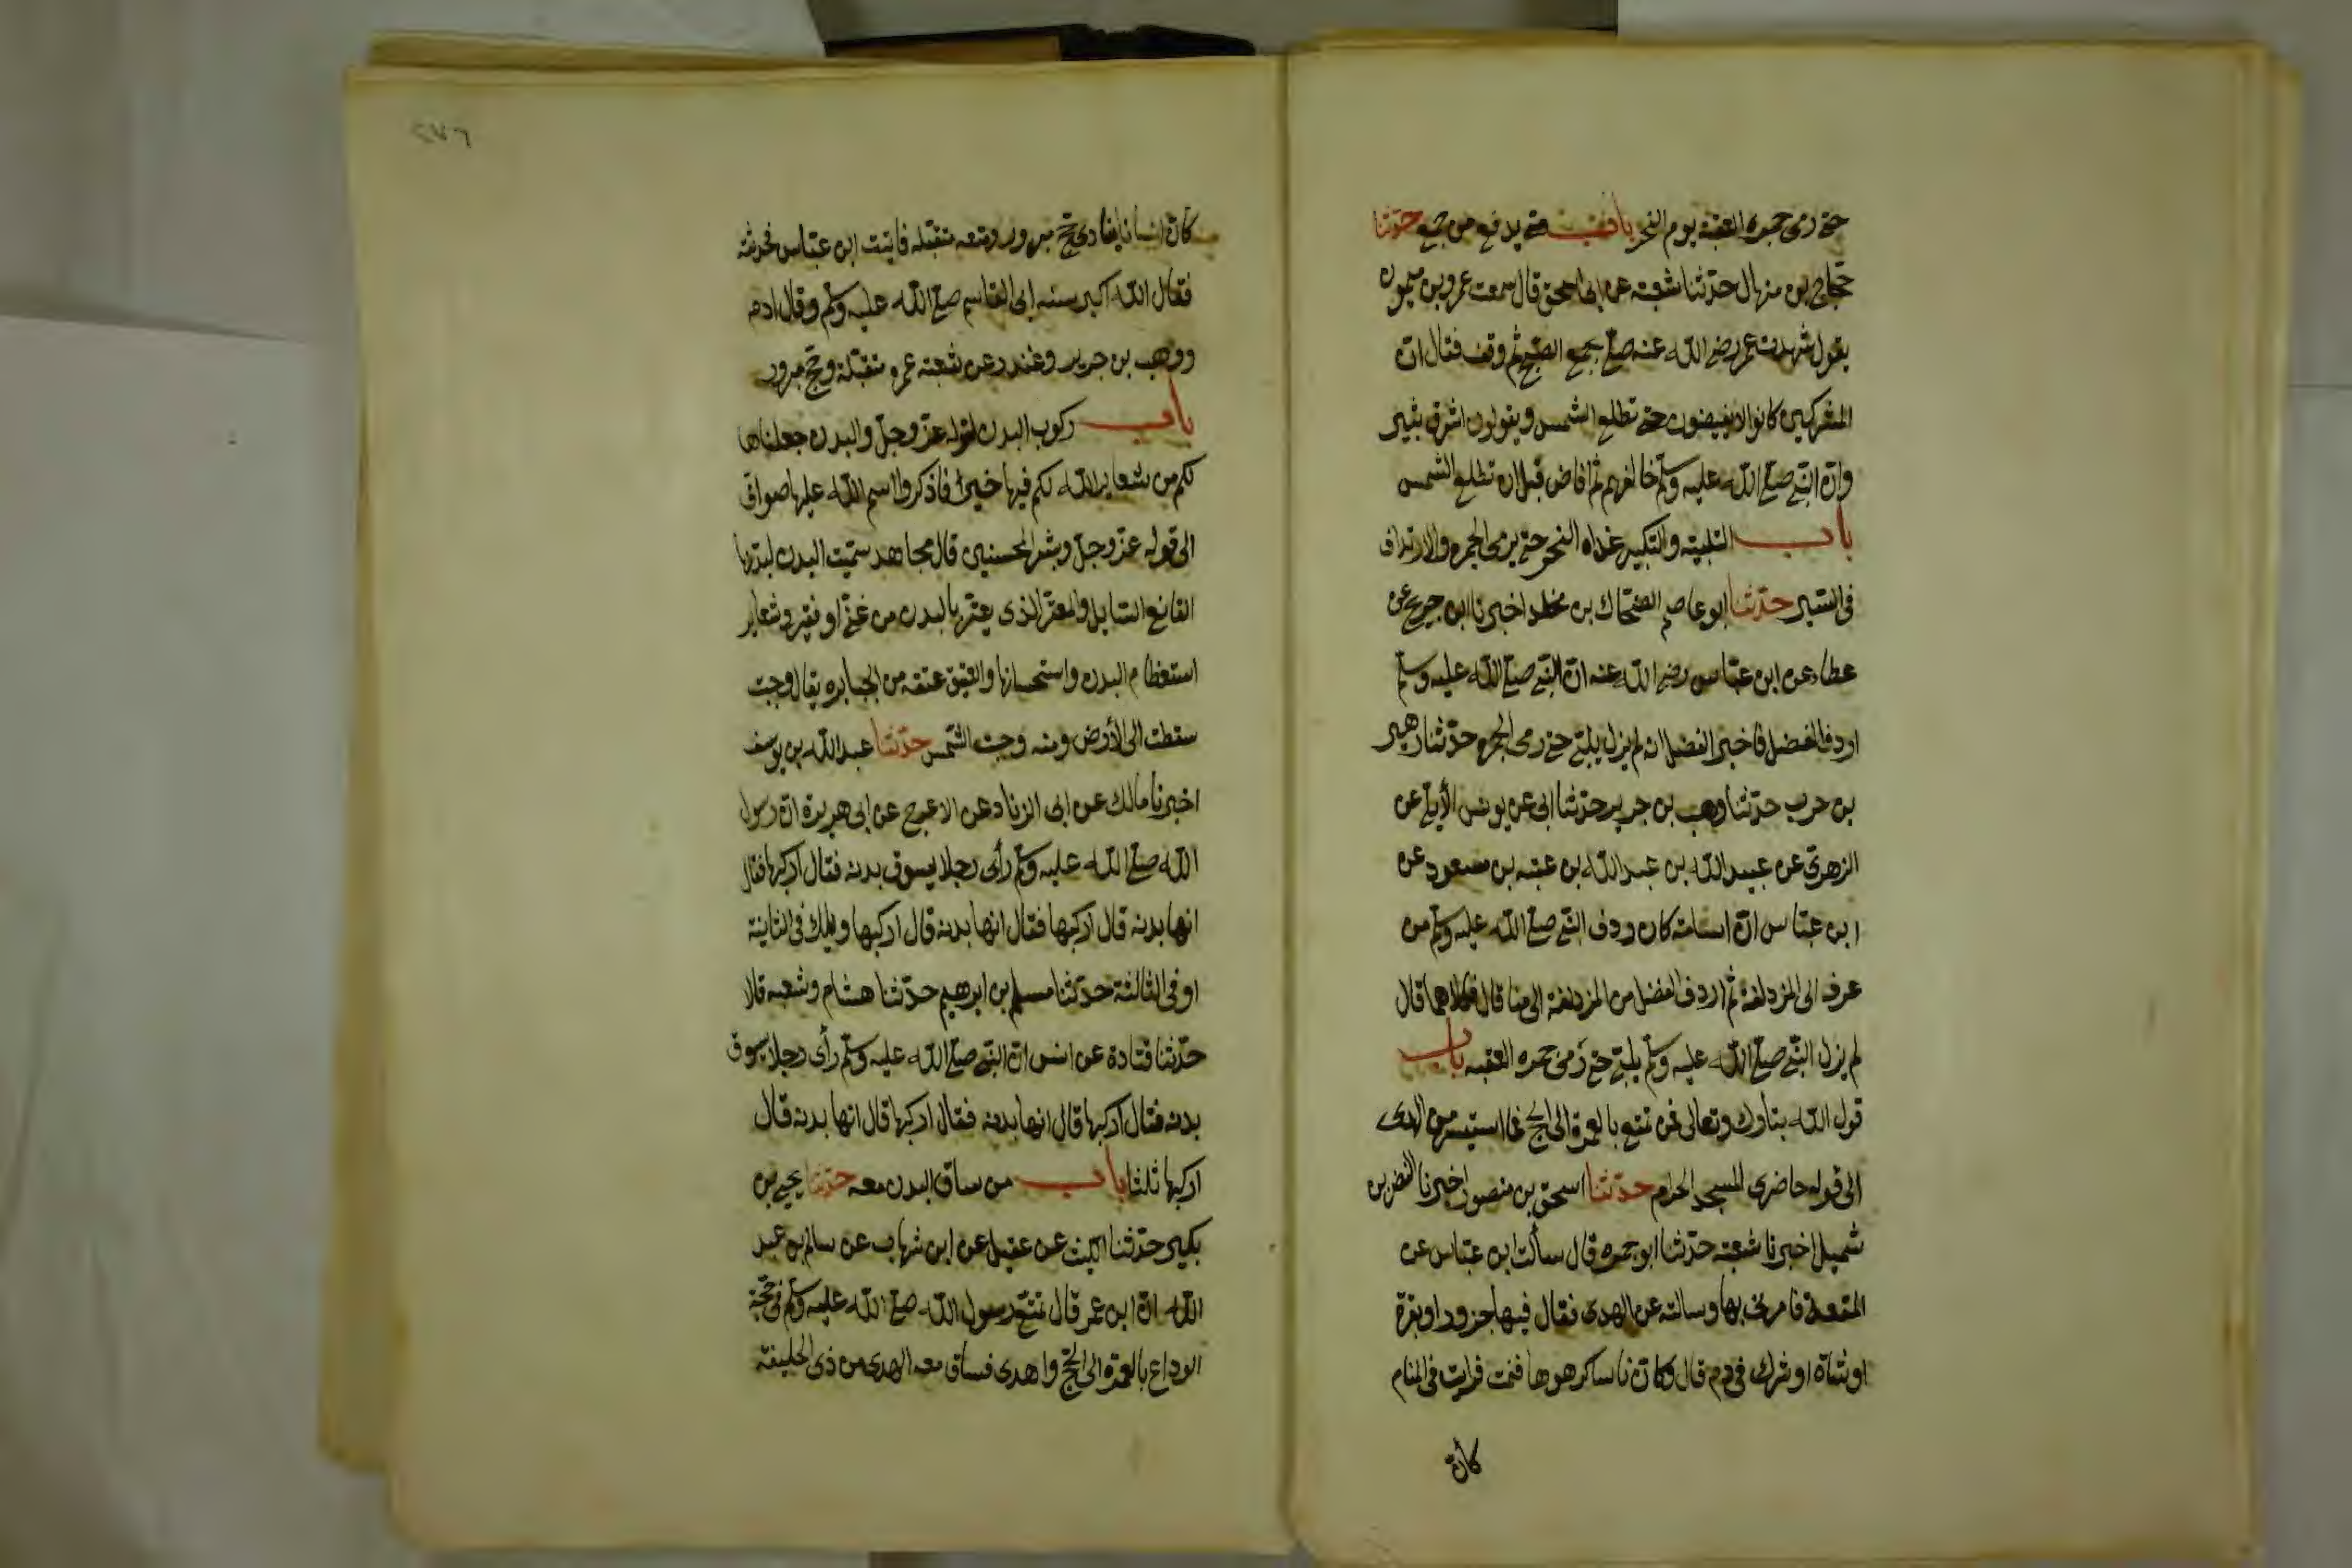 حتى رمى جمره العقبة يوم النحر باب متى يدفع من جمع حدثنا
حجاج بن منهال حدثنا شعبة عن ابى اسحق قال سمعت عمرو بن ميمون
يقول شهدت عمر رضى الله عنه صلى بجمع الصبح ثم وقف فقال ان
المشركين كانوا لا يفيضون حتى تطلع الشمس ويقولون اشرق ثبير
وان النبى صلى الله عليه وسلم خالفهم ثم افاض قبل ان تطلع الشمس
باب التلبية والتكبير غداه النحر حتى يرمى الجمره والارتداف
فى السير حدثنا ابو عاصم الضحاك بن مخلد اخبرنا ابن جريج عن
عطاء عن ابن عباس رضى الله عنه ان النبى صلى الله عليه وسلم
اردف الفضل فاخبر الفضل انه لم يزل يلبى حتى رمى الجمره حدثنا زهير
بن حرب حدثنا وهب بن جرير حدثنا ابى عن يونس الأيلى عن
الزهرى عن عبيد الله بن عبد الله بن عتبه بن مسعود عن
ابن عباس ان اسامة كان ردف النبى صلى الله عليه وسلم من
عرفه الى المزدلفة ثم اردف الفضل من المزدلفة الى منا قال فكلاهما قال
لم يزل النبى صلى الله عليه وسلم يلبى حتى رمى جمره العقبه باب
قول الله تبارك وتعالى فمن تمتع بالعمرة الى الحج فما استيسر من الهدى
الى قوله حاضرى المسجد الحرام حدثنا اسحق بن منصور اخبرنا النضر بن
شميل اخبرنا شعبة حدثنا ابو جمره قال سألت ابن عباس عن
المتعة فامرنى بها وسالته عن الهدى فقال فيها جزور او بقرة
او شاة او شرك فى دم قال وكان ناسا كرهوها فنمت فرايت فى المنام
كان
٢٧٦
كان انسانا ينادى حج مبرور ومتعه متقبله فاتيت ابن عباس فحدثته
فقال الله اكبر سنه ابى القاسم صلى الله عليه وسلم وقال ادم
ووهب بن جرير وغندر عن شعبة عمره متقبلة وحج مبرور
باب ركوب البدن لقوله عز وجل والبدن جعلناها
لكم من شعاير الله لكم فيها خير فاذكروا اسم الله عليها صواف
الى قوله عز وجل وبشر المحسنين قال مجاهد سميت البدن لبدنها
القانع السايل والمعتر الذى يعتر بالبدن من غنى او فقير وشعاير
استعظام البدن واستحسانها والعتيق عتقه من الجبابره يقال وجبت
سقطت الى الأرض ومنه وجبت الشمس حدثنا عبد الله بن يوسف
اخبرنا مالك عن ابى الزناد عن الاعرج عن ابى هريرة ان رسول
الله صلى الله عليه وسلم رأى رجلا يسوق بدنه فقال اركبها فقال
انها بدنه قال اركبها فقال انها بدنه قال اركبها ويلك فى الثانية
او فى الثالثة حدثنا مسلم بن ابرهيم حدثنا هشام وشعبه قالا
حدثنا قتادة عن انس ان النبى صلى الله عليه وسلم رأى رجلا يسوق
بدنه فقال اركبها قال انها بدنه فقال اركبها قال انها بدنه قال
اركبها ثلثا باب من ساق البدن معه حدثنا يحيى بن
بكير حدثنا الليث عن عقيل عن ابن شهاب عن سالم بن عبد
الله ان ابن عمر قال تمتع رسول الله صلى الله عليه وسلم فى حجة
الوداع بالعمره الى الحج واهدى فساق معه الهدى من ذى الحليفة